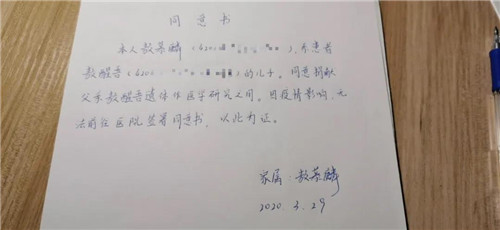 同意书
本人敖慕麟（4201 ），系患者
敖醒吾（4201 ）的儿子。同意捐献
父亲敖醒吾遗体作医学研究之用。因疫情影响，无
法前往医院签署同意书，以此为证。
家属：敖慕麟
2020 3.29